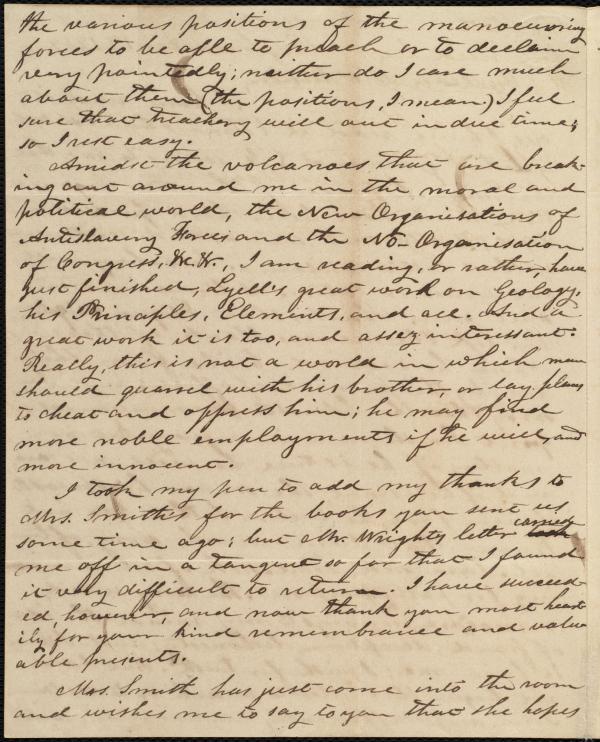 the various positions of the manoeuvring
forces to be able to preach or to declaim
very pointedly; neither do I care much
about them (the positions, I mean.) I feel
sure that treachery will out in due time;
so I rest easy.
Amidst the volcanoes that are break-
ing out around me in the moral and
political world, the New Organisations of
Antislavery Forces and the No-Organisation
of Congress, &c. &c., I am reading, or rather, have
just finished, Lyell's great work on Geology,
his Principles, Elements, and all. And a
great work it is too, and assez interessant.
Really, this is not a world in which man
should quarrel with his brother, or lay plans
to cheat and oppress him; he may find
more noble employments if he will, and
more innocent.
I took my pen to add my thanks to
Mrs. Smith's for the books you sent us
some time ago; but Mr. Wright's letter carried
me off in a tangent so far that I found
it very difficult to return. I have succeed-
ed, however, and now thank you most heart-
ily for your kind remembrance and valu-
able presents.
Mrs. Smith has just come into the room
and wishes me to say to you that she hopes